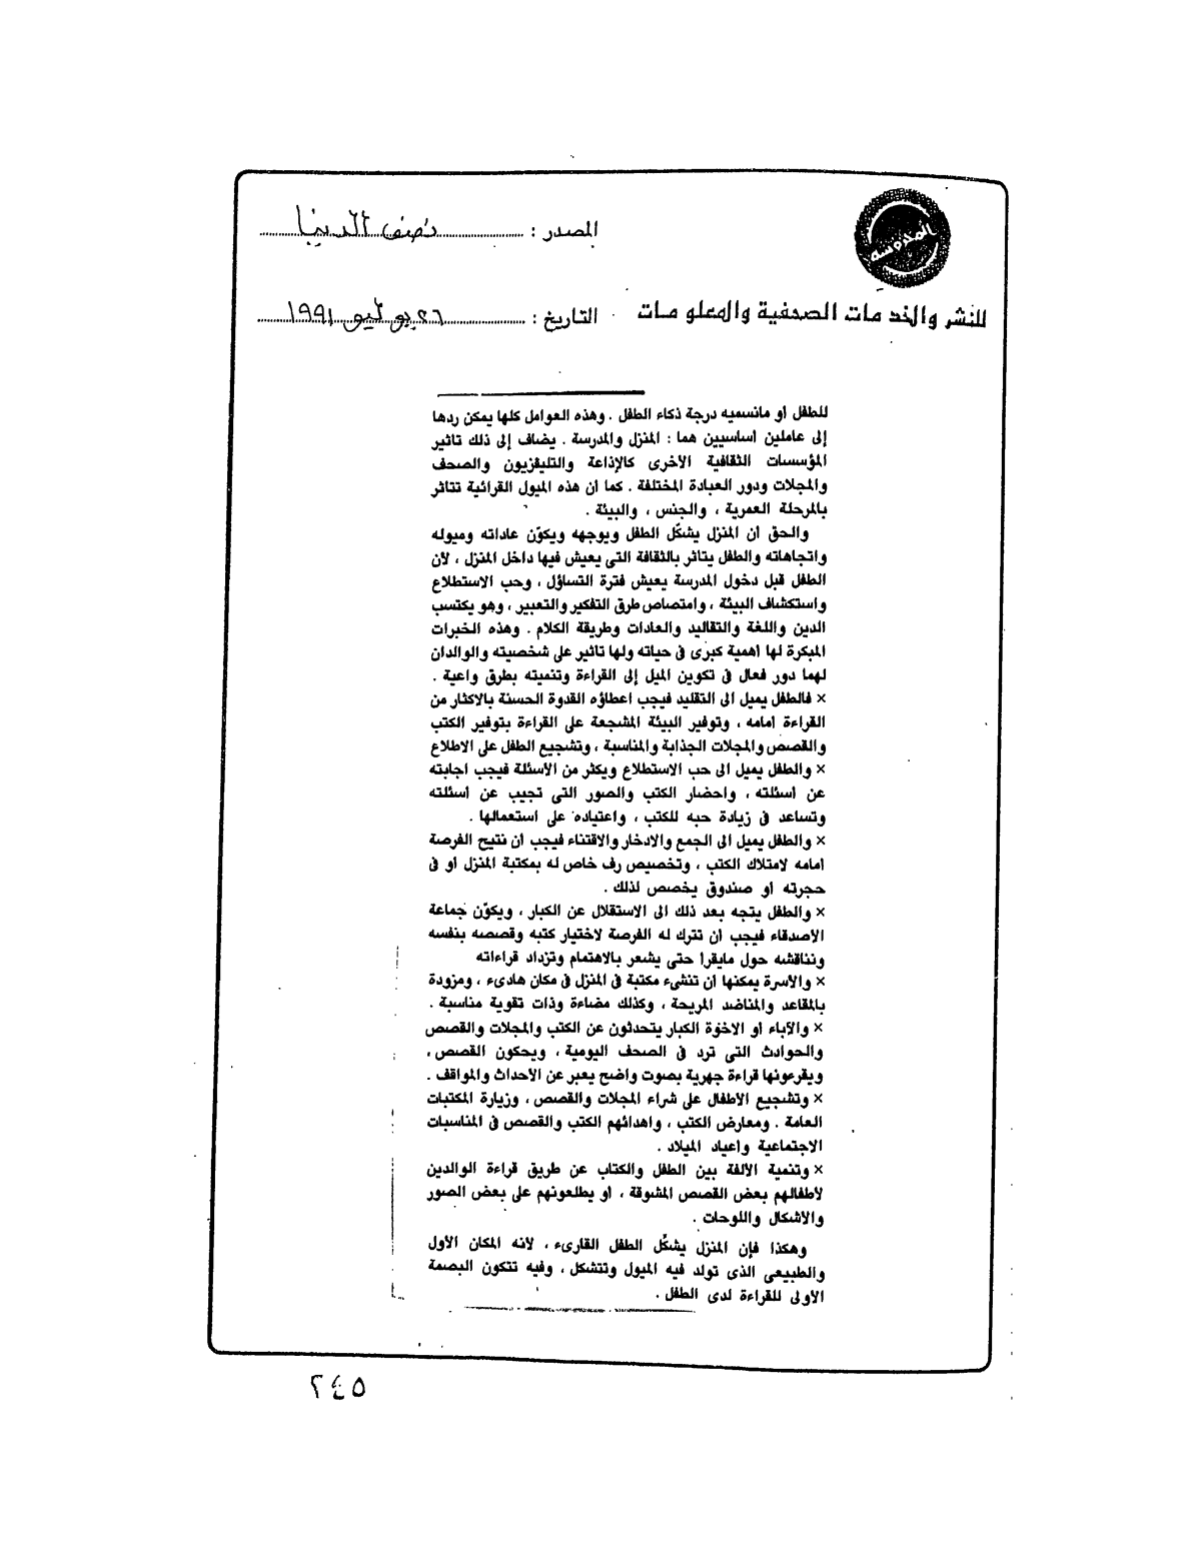 المحروسه
للنشر والخدمات الصحفية والمعلومات
المصدر : نصف الدنيا
التاريخ : ٢٦ يوليو ١٩٩١
للطفل أو مانسميه درجة ذكاء الطفل . وهذه العوامل كلها يمكن ردها
إلى عاملين أساسيين هما : المنزل والمدرسة . يضاف إلى ذلك تأثير
المؤسسات الثقافية الأخرى كالإذاعة والتليفزيون والصحف
والمجلات ودور العبادة المختلفة . كما أن هذه الميول القرائية تتأثر
بالمرحلة العمرية ، والجنس ، والبيئة .
والحق أن المنزل يشكّل الطفل ويوجهه ويكوّن عاداته وميوله
واتجاهاته والطفل يتأثر بالثقافة التى يعيش فيها داخل المنزل ، لأن
الطفل قبل دخول المدرسة يعيش فترة التساؤل ، وحب الاستطلاع
واستكشاف البيئة ، وامتصاص طرق التفكير والتعبير ، وهو يكتسب
الدين واللغة والتقاليد والعادات وطريقة الكلام . وهذه الخبرات
المبكرة لها أهمية كبرى فى حياته ولها تأثير على شخصيته والوالدان
لهما دور فعال فى تكوين الميل إلى القراءة وتنميته بطرق واعية .
× فالطفل يميل الى التقليد فيجب اعطاؤه القدوة الحسنة بالاكثار من
القراءة أمامه ، وتوفير البيئة المشجعة على القراءة بتوفير الكتب
والقصص والمجلات الجذابة والمناسبة ، وتشجيع الطفل على الاطلاع
× والطفل يميل الى حب الاستطلاع ويكثر من الأسئلة فيجب اجابته
عن اسئلته ، واحضار الكتب والصور التى تجيب عن أسئلته
وتساعد فى زيادة حبه للكتب ، واعتياده على استعمالها .
× والطفل يميل الى الجمع والادخار والاقتناء فيجب أن نتيح الفرصة
أمامه لامتلاك الكتب ، وتخصيص رف خاص له بمكتبة المنزل أو فى
حجرته أو صندوق يخصص لذلك .
× والطفل يتجه بعد ذلك الى الاستقلال عن الكبار ، ويكوّن جماعة
الأصدقاء فيجب أن تترك له الفرصة لاختيار كتبه وقصصه بنفسه
ونناقشه حول مايقرأ حتى يشعر بالاهتمام وتزداد قراءاته
× والأسرة يمكنها أن تنشىء مكتبة فى المنزل فى مكان هادىء ، ومزودة
بالمقاعد والمناضد المريحة ، وكذلك مضاءة وذات تقوية مناسبة .
× والآباء أو الاخوة الكبار يتحدثون عن الكتب والمجلات والقصص
والحوادث التى ترد فى الصحف اليومية ، ويحكون القصص ،
ويقرءونها قراءة جهرية بصوت واضح يعبر عن الأحداث والمواقف .
× وتشجيع الأطفال على شراء المجلات والقصص ، وزيارة المكتبات
العامة . ومعارض الكتب ، واهدائهم الكتب والقصص فى المناسبات
الاجتماعية وأعياد الميلاد .
× وتنمية الألفة بين الطفل والكتاب عن طريق قراءة الوالدين
لأطفالهم بعض القصص المشوقة ، أو يطلعونهم على بعض الصور
والأشكال واللوحات .
وهكذا فإن المنزل يشكّل الطفل القارىء ، لأنه المكان الأول
والطبيعى الذى تولد فيه الميول وتتشكل ، وفيه تتكون البصمة
الأولى للقراءة لدى الطفل .
٢٤٥